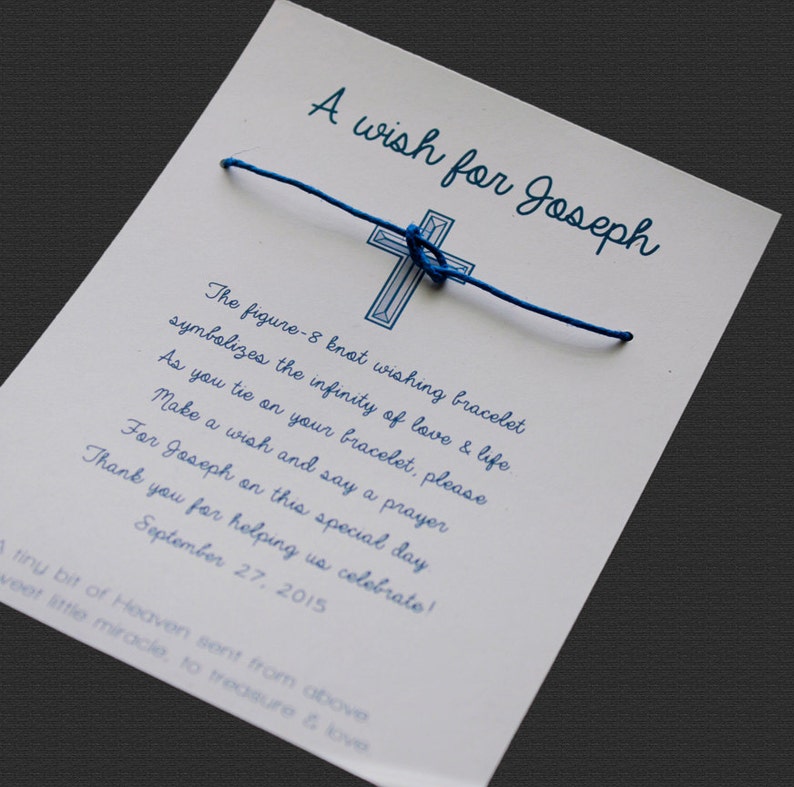 A wish for Joseph
The figure-8 knot wishing bracelet
symbolizes the infinity of love & life.
As you tie on your bracelet, please
Make a wish and say a prayer
For Joseph on this special day
Thank you for helping us celebrate!
September 27, 2015
A tiny bit of Heaven sent from above
weet little miracle, to treasure & love